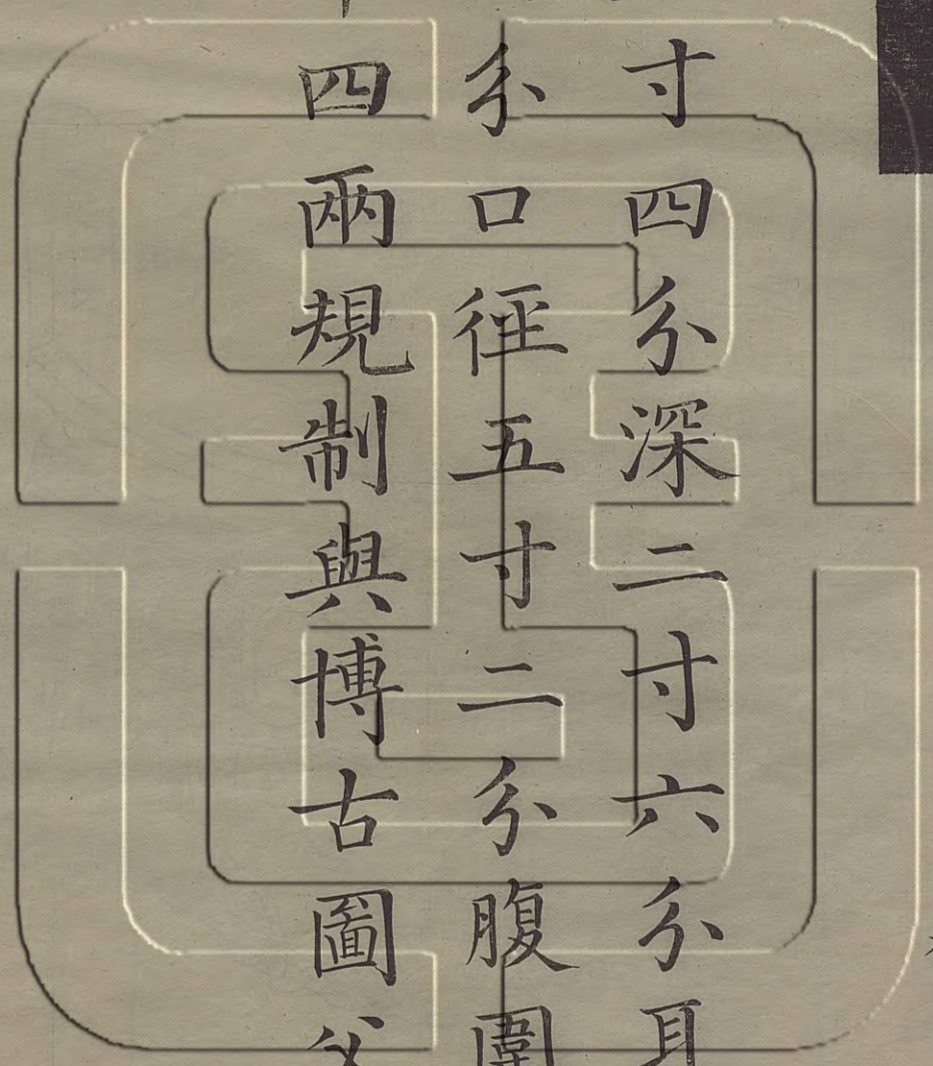 寸四分深二寸六分耳
分口徑五寸二分腹圍
四兩規制與博古圖父